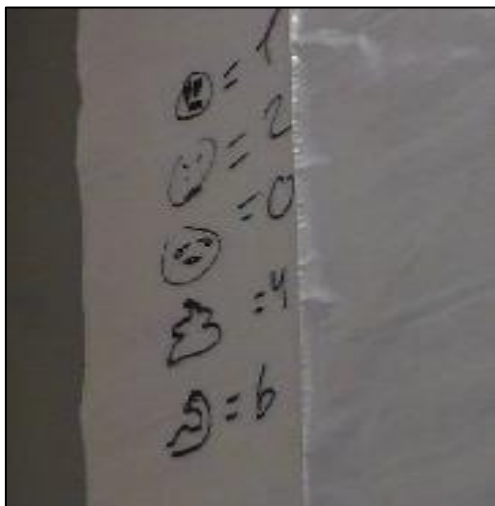 = 1
= 2
= 0
= 4
= 6